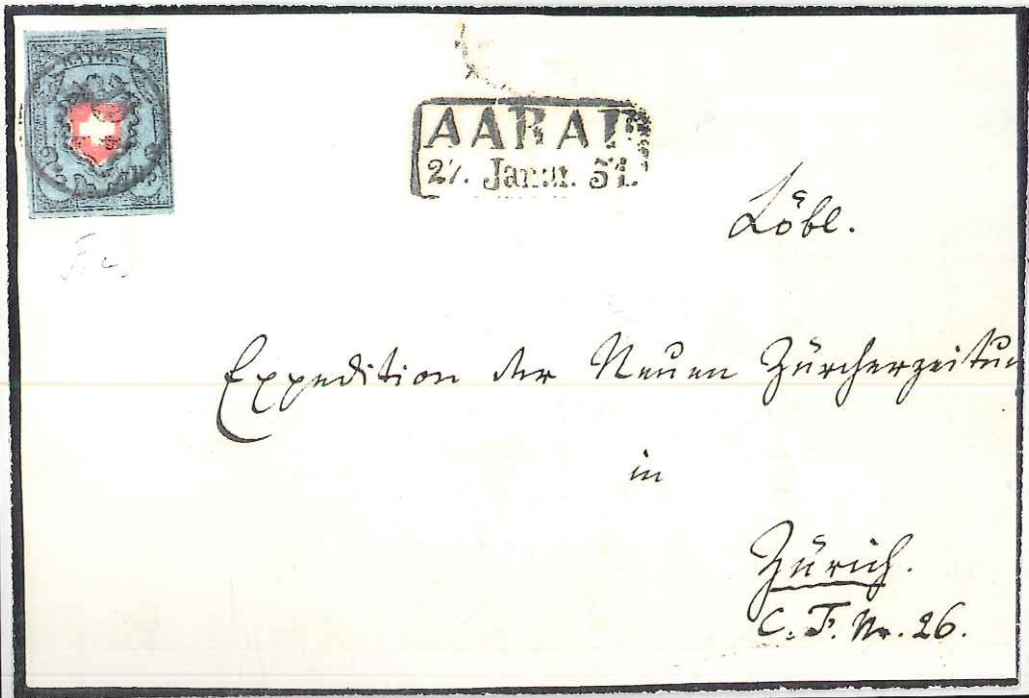 RAYON I
AARAU
Januar. 51.
Löbl.
Expedition der Neuen Zürcherzeitun
in
Zürich.
C. F. No. 26.